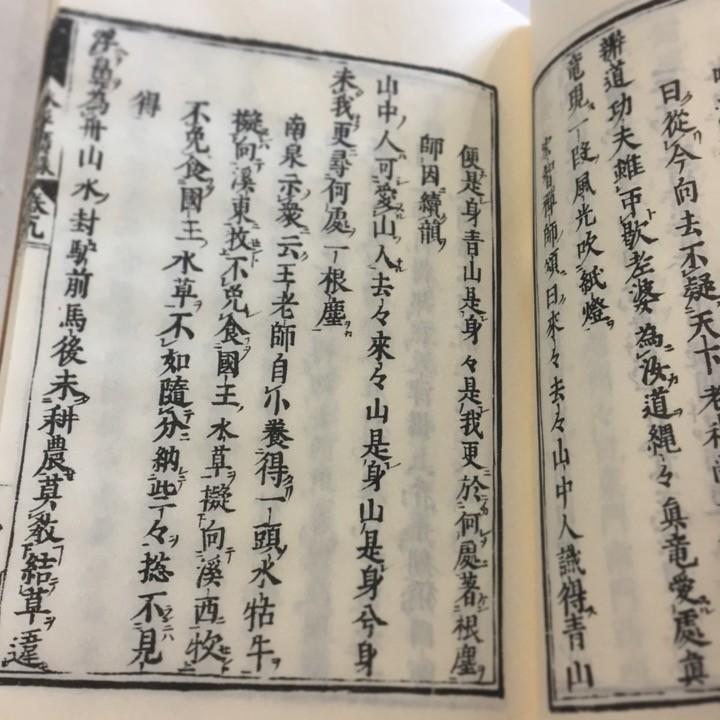 曰從今向去不疑天下老
辦道功夫雖帀歇老婆為汝道繩々真竜愛處真
竜現一段風光吹紙燈
宏智禅師頌曰來々去々山中人識得青山
便是身青山是身々是我更於何處著根塵
師因續韻
山中人可愛山人去々來々山是身山是身兮身
未我更尋何處一根塵
南泉示衆云王老師自小養得一頭水牯牛
擬向溪東牧不免食國王水草擬向溪西牧
不免食國王水草不如隨分納些々捴不見
得
浮鼻為舟山水封馿前馬後未耕農莫教結草違
卷九